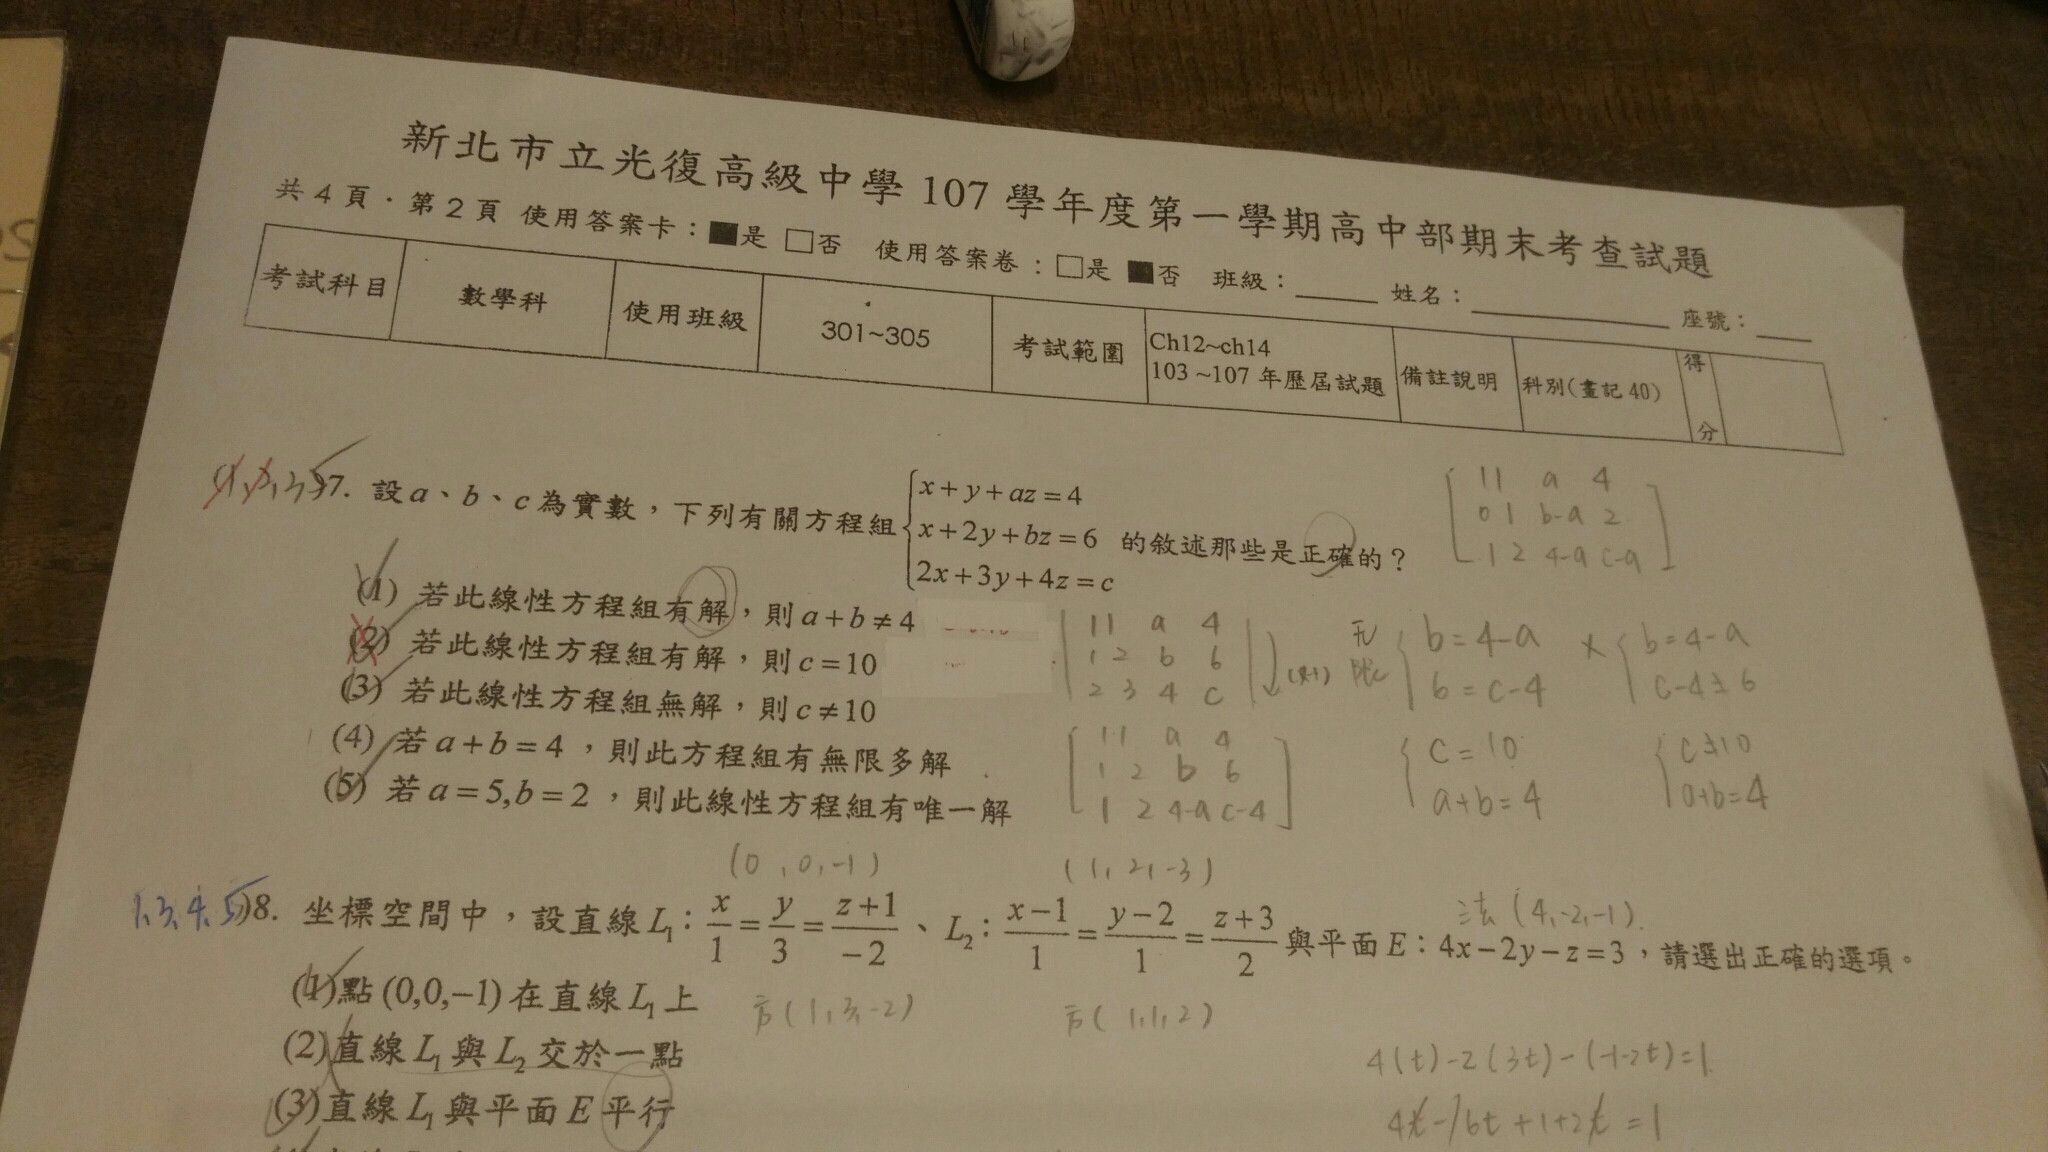 新北市立光復高級中學 107 學年度第一學期高中部期末考查試題
共 4 頁．第 2 頁 使用答案卡：■是 □否 使用答案卷：□是 ■否 班級：____ 姓名：________ 座號：___
考試科目 數學科 使用班級 301~305 考試範圍 Ch12~ch14 103 ~107 年歷屆試題 備註說明 科別(畫記 40) 得分
7. 設 a、b、c 為實數，下列有關方程組 { x+y+az=4
x+2y+bz=6 的敘述那些是正確的？
2x+3y+4z=c
(1) 若此線性方程組有解，則 a+b≠4
(2) 若此線性方程組有解，則 c=10
(3) 若此線性方程組無解，則 c≠10
(4) 若 a+b=4，則此方程組有無限多解
(5) 若 a=5,b=2，則此線性方程組有唯一解
1 1 a 4
0 1 b-a 2
1 2 4-a c-a
1 1 a 4
1 2 b 6
2 3 4 c
无限 { b=4-a
6=c-4
× { b=4-a
c-4≠6
1 1 a 4
1 2 b 6
1 2 4-a c-4
{ c=10
a+b=4
{ c≠10
a+b=4
(0,0,-1) (1,2,-3)
法(4,-2,-1)
1,3,4,5 8. 坐標空間中，設直線 L₁: x/1=y/3=(z+1)/-2、L₂: (x-1)/1=(y-2)/1=(z+3)/2 與平面 E：4x-2y-z=3，請選出正確的選項。
方(1,3,-2) 方(1,1,2)
(1)點 (0,0,-1) 在直線 L₁ 上
(2)直線 L₁ 與 L₂ 交於一點
(3)直線 L₁ 與平面 E 平行
4(t)-2(3t)-(-1-2t)=1
4t-6t+1+2t=1